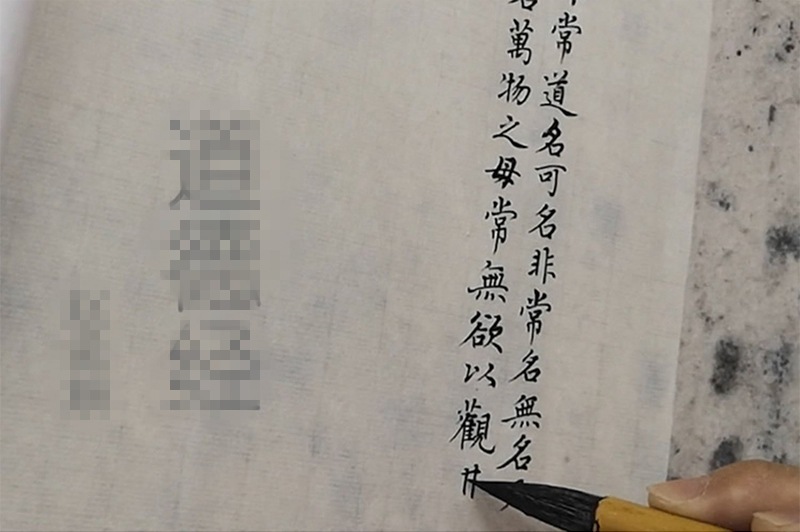 常道名可名非常名無名
名萬物之母常無欲以觀